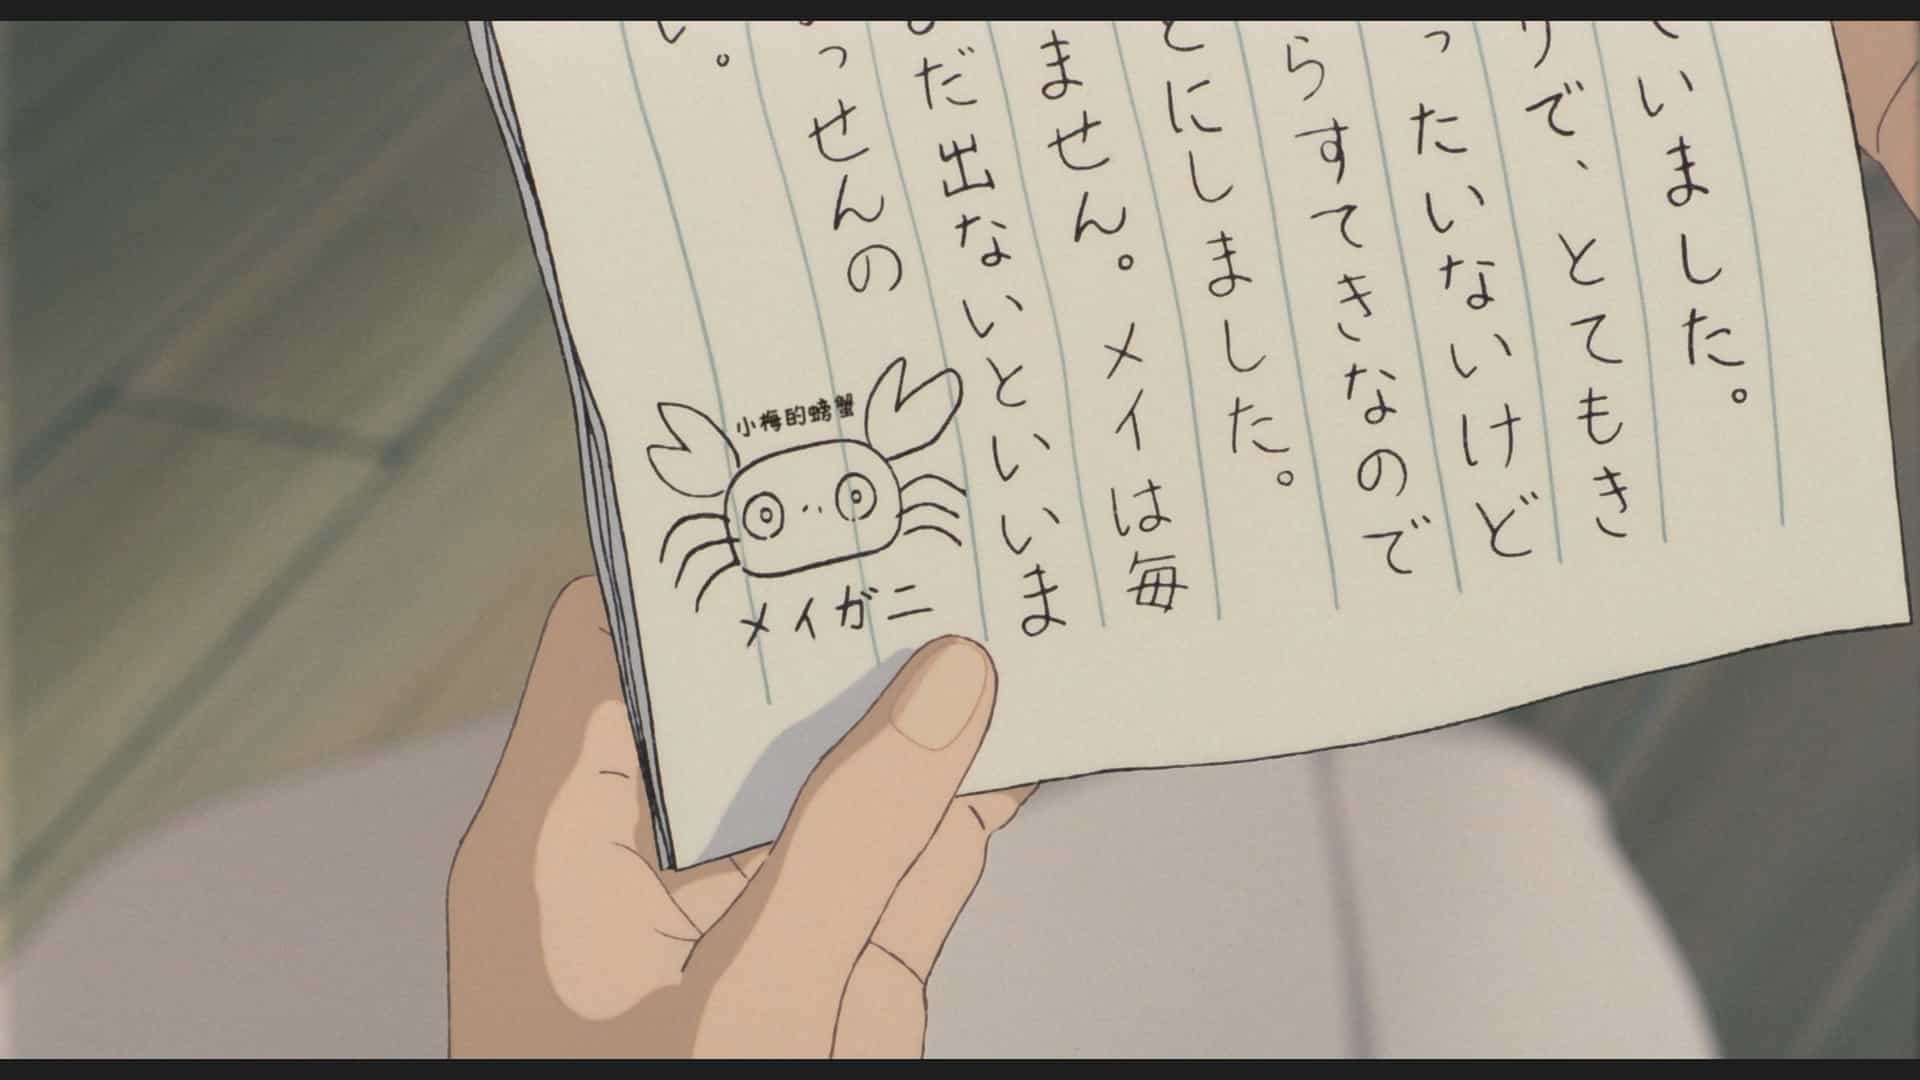 ていました。
りで、とてもき
ったいないけど
らすてきなので
とにしました。
ません。メイは毎
まだ出ないといいま
っせんの
い。
小梅的螃蟹
メイガニ